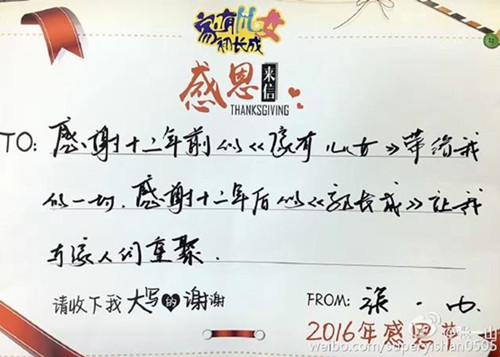 家有儿女
初长成
感恩来信
THANKSGIVING
TO: 感谢十二年前的《家有儿女》带给我
的一切.感谢十二年后的《初长成》让我
与家人们重聚.
请收下我大写的谢谢 FROM: 张一山
2016年感恩节
@张一山
weibo.com/superyishan0505